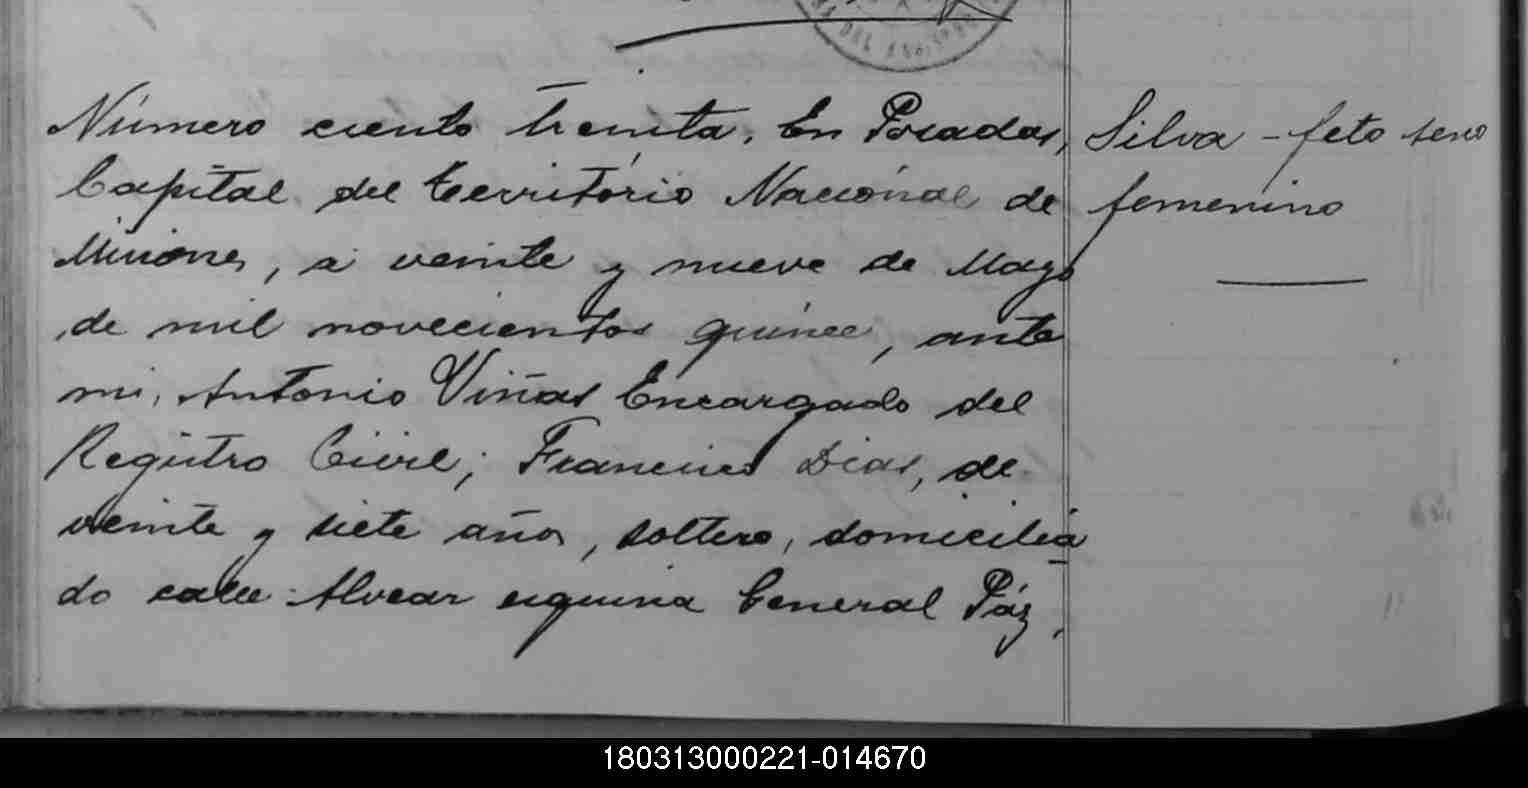 Número ciento treinta. En Posadas,
Capital del Territorio Nacional de
Misiones, á veinte y nueve de Mayo
de mil novecientos quince, ante
mi, Antonio Viñas Encargado del
Registro Civil; Francisco Dias, de
veinte y siete años, soltero, domicilia
do calle Alvear esquina General Páz,
Silva - feto sexo
femenino
180313000221-014670